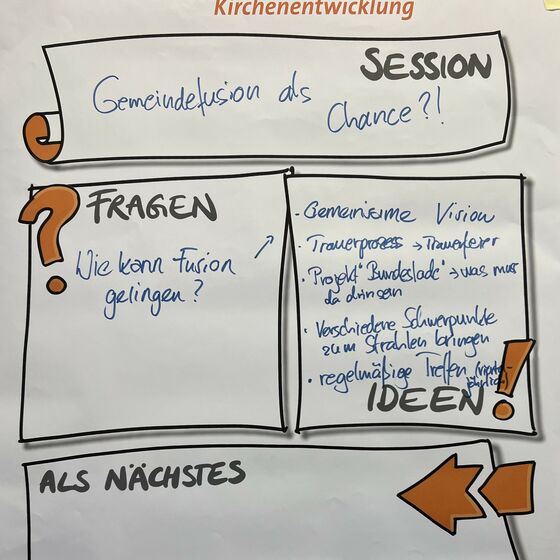 Kirchenentwicklung
SESSION
Gemeindefusion als
Chance?!
FRAGEN
Wie kann Fusion
gelingen?
· Gemeinsame Vision
· Trauerprozess → Trauerfeier
· Projekt "Bundeslade" → was muss
da drin sein
· Verschiedene Schwerpunkte
zum Strahlen bringen
· regelmäßige Treffen (viertel-
jährlich)
IDEEN
ALS NÄCHSTES